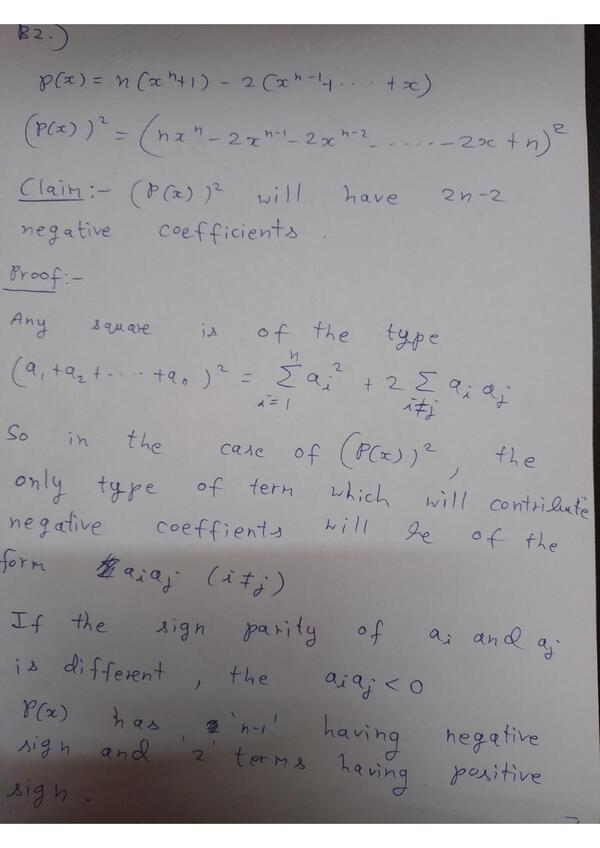 B2.)
p(x) = n(xⁿ+1) - 2(xⁿ⁻¹+ ..... +x)
(P(x))² = (nxⁿ - 2xⁿ⁻¹ - 2xⁿ⁻² ...... - 2x + n)²
Claim:- (P(x))² will have 2n-2
negative coefficients.
Proof:-
Any square is of the type
(a₁+a₂+.....+aₙ)² = ∑ᵢ₌₁ⁿ aᵢ² + 2 ∑ᵢ≠ⱼ aᵢ aⱼ
So in the case of (P(x))², the
only type of term which will contribute
negative coeffients will be of the
form aᵢaⱼ (i≠j)
If the sign parity of aᵢ and aⱼ
is different, the aᵢaⱼ < 0
P(x) has 'n-1' having negative
sign and '2' terms having positive
sign.